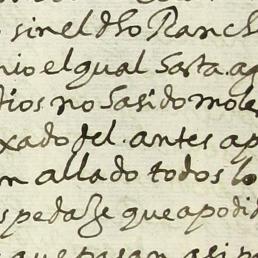 sin el dho Ranch
nio el qual Sasta ag
dios no Sasido mole
xado del. antes ap
n allado todos lo
s pedaSe que apodid
que pasan asi p